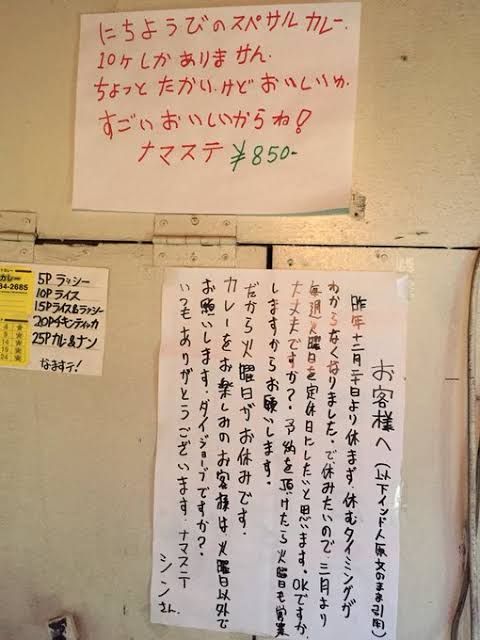 にちようびのスペサルカレー.
10ヶしかありません.
ちょっとたかい.けどおいしいゅ.
すごいおいしいからね!
ナマステ ¥850-
カレー
84-2685
5P ラッシー
10P ライス
15P ライス&ラッシー
20P チキンティルカ
25P カレー&ナン
なますテ!
4 ☆
9 ☆
14 ☆
19 ☆
24 ☆
お客様へ(以下インド人原文のまま引用)
昨年十二月二十日より休まず.休むタイミングが
わからなくなりました.で休みたいので.三月より
毎週火曜日を定休日にしたいと思います。OKですか.
大丈夫ですか?.予約を頂けたら火曜日も営業
しますからお願いします。
だから火曜日がお休みです.
カレーをお楽しみのお客様は火曜日以外で
お願いします.ダイジョーブですか?.
いつもありがとうございます.ナマステー
シンさん.